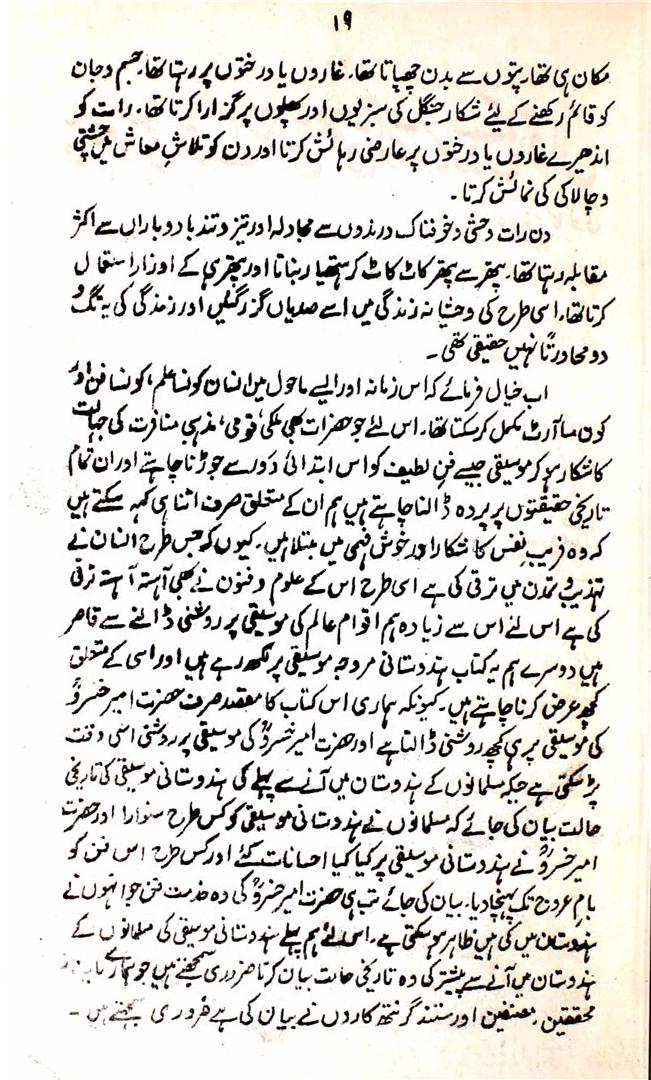 ۱۹
مکان ہی تھا۔ پتوں سے بدن چھپاتا تھا۔ غاروں یا درختوں پر رہتا تھا۔ جسم و جان
کو قائم رکھنے کے لیئے شکار جنگل کی سبزیوں اور پھلوں پر گزارا کرتا تھا۔ رات کو
اندھیرے غاروں یا درختوں پر عارضی رہائش کرتا اور دن کو تلاشِ معاش میں چستی
و چالاکی کی نمائش کرتا۔
دن رات وحشی و خوفناک درندوں سے مجادلہ اور تیز و تند باد و باراں سے اکثر
مقابلہ رہتا تھا۔ پتھر سے پتھر کاٹ کاٹ کر ہتھیار بناتا اور پتھر ہی کے اوزار استعمال
کرتا تھا۔ اسی طرح کی وحشیانہ زندگی میں اسے صدیاں گزر گئیں اور زندگی کی یہ تگ و
دو محاورتاً نہیں حقیقی تھی۔
اب خیال فرمائے کہ اس زمانہ اور ایسے ماحول میں انسان کونسا علم، کونسا فن اور
کون سا آرٹ مکمل کر سکتا تھا۔ اس لئے جو حضرات بھی ملکی، قومی، مذہبی منافرت کی جہالت
کا شکار ہو کر موسیقی جیسے فنِ لطیف کو اس ابتدائی دَور سے جوڑنا چاہتے اور ان تمام
تاریخی حقیقتوں پر پردہ ڈالنا چاہتے ہیں ہم ان کے متعلق صرف اتنا ہی کہہ سکتے ہیں
کہ وہ فریبِ نفس کا شکار اور خوش فہمی میں مبتلا ہیں۔ کیوں کہ جس طرح انسان نے
تہذیب و تمدن میں ترقی کی ہے اسی طرح اس کے علوم و فنون نے بھی آہستہ آہستہ ترقی
کی ہے اس لئے اس سے زیادہ ہم اقوام عالم کی موسیقی پر روشنی ڈالنے سے قاصر
ہیں دوسرے ہم یہ کتاب ہندوستانی مروجہ موسیقی پر لکھ رہے ہیں اور اسی کے متعلق
کچھ عرض کرنا چاہتے ہیں۔ کیونکہ ہماری اس کتاب کا مقصد صرف حضرت امیر خسروؒ
کی موسیقی پر ہی کچھ روشنی ڈالنا ہے اور حضرت امیر خسروؒ کی موسیقی پر روشنی اسی وقت
پڑ سکتی ہے جبکہ مسلمانوں کے ہندوستان میں آنے سے پہلے کی ہندوستانی موسیقی کی تاریخی
حالت بیان کی جائے کہ مسلمانوں نے ہندوستانی موسیقی کو کس طرح سنوارا اور حضرت
امیر خسروؒ نے ہندوستانی موسیقی پر کیا کیا احسانات کئے اور کس طرح اس فن کو
بامِ عروج تک پہنچا دیا۔ بیان کی جائے تب ہی حضرت امیر خسروؒ کی وہ خدمت فن جو انہوں نے
ہندوستان میں کی ہیں ظاہر ہو سکتی ہے۔ اس لئے ہم پہلے ہندوستانی موسیقی کی مسلمانوں کے
ہندوستان میں آنے سے پیشتر کی وہ تاریخی حالت بیان کرنا ضروری سمجھتے ہیں جو ہمارے
محققین، مصنفین اور مستند گرنتھ کاروں نے بیان کی ہے ضروری سمجھتے ہیں۔